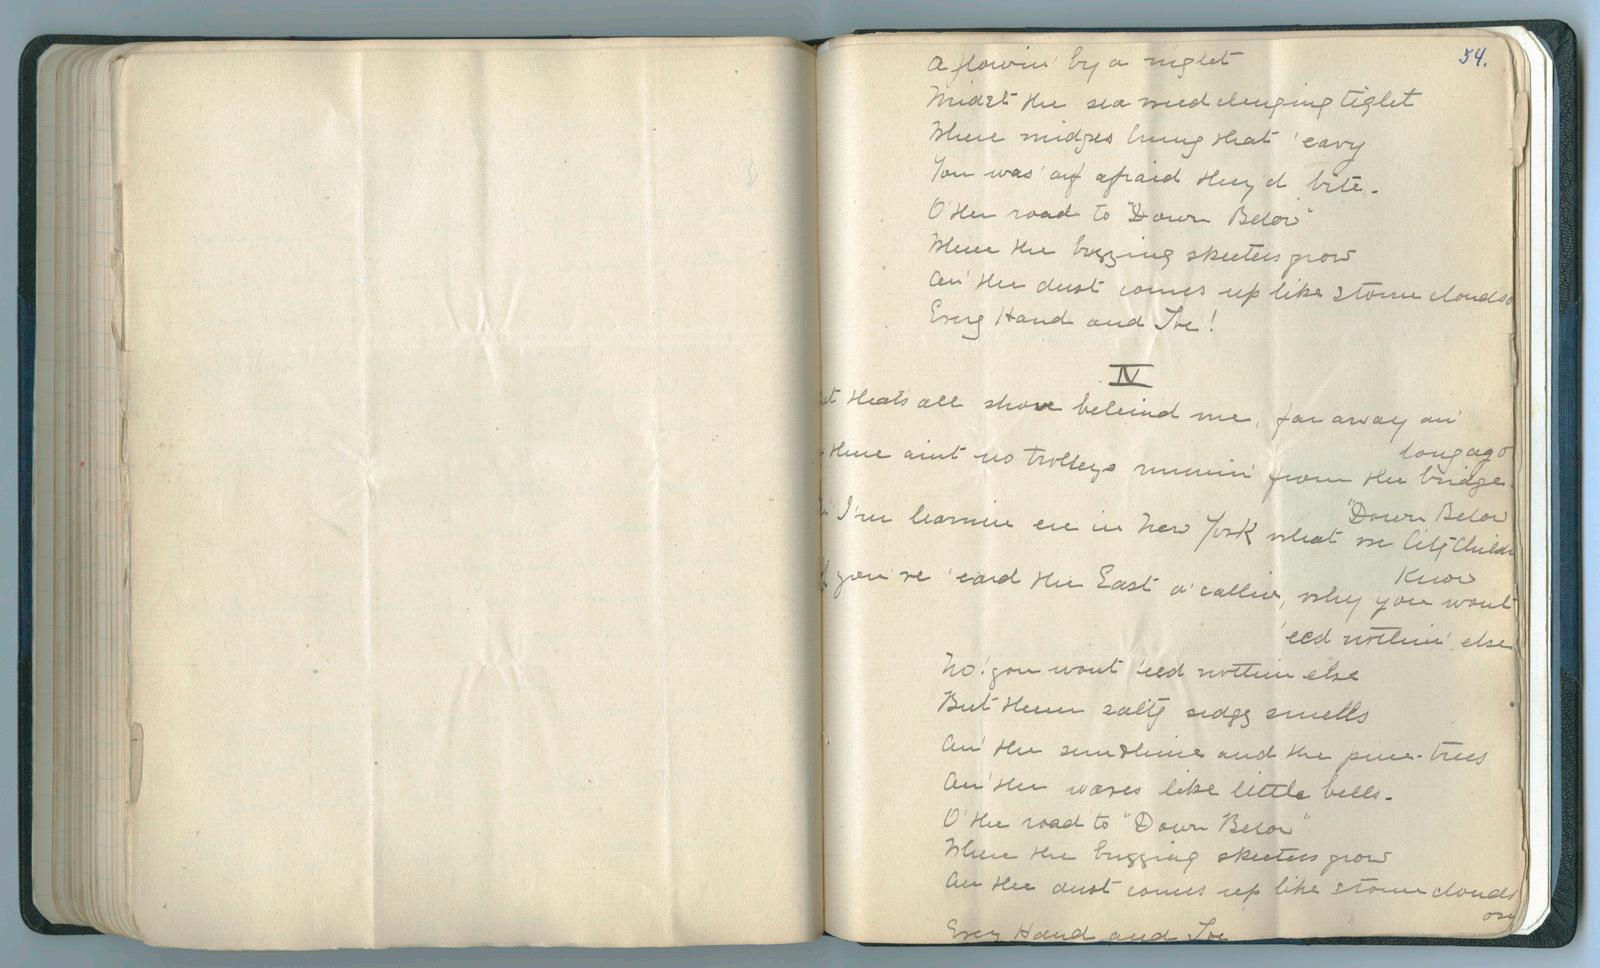 54.
A flowin' by a night
Midst the sea weed clinging tight
Where midges hung that 'eavy
You was 'arf afraid they'd bite.
O' the road to "Down Below"
Where the buzzing skeeters grow
An' the dust comes up like storm clouds
Every Hand and Toe!
IV
that's all shove behind me, far away an'
long ago
there aint no trolleys runnin' from the bridge
"Down Below
I'm learnin 'ere in New York what we City
Know
you've 'eard the East a' callin, why you wont
'eed nothin' else
No! you wont 'eed nothin else
But them salty sedgy smells
An' the sunshine and the pine-trees
An' the waves like little bells.
O' the road to "Down Below"
Where the buzzing skeeters grow
An the dust comes up like storm clouds
Every Hand and Toe